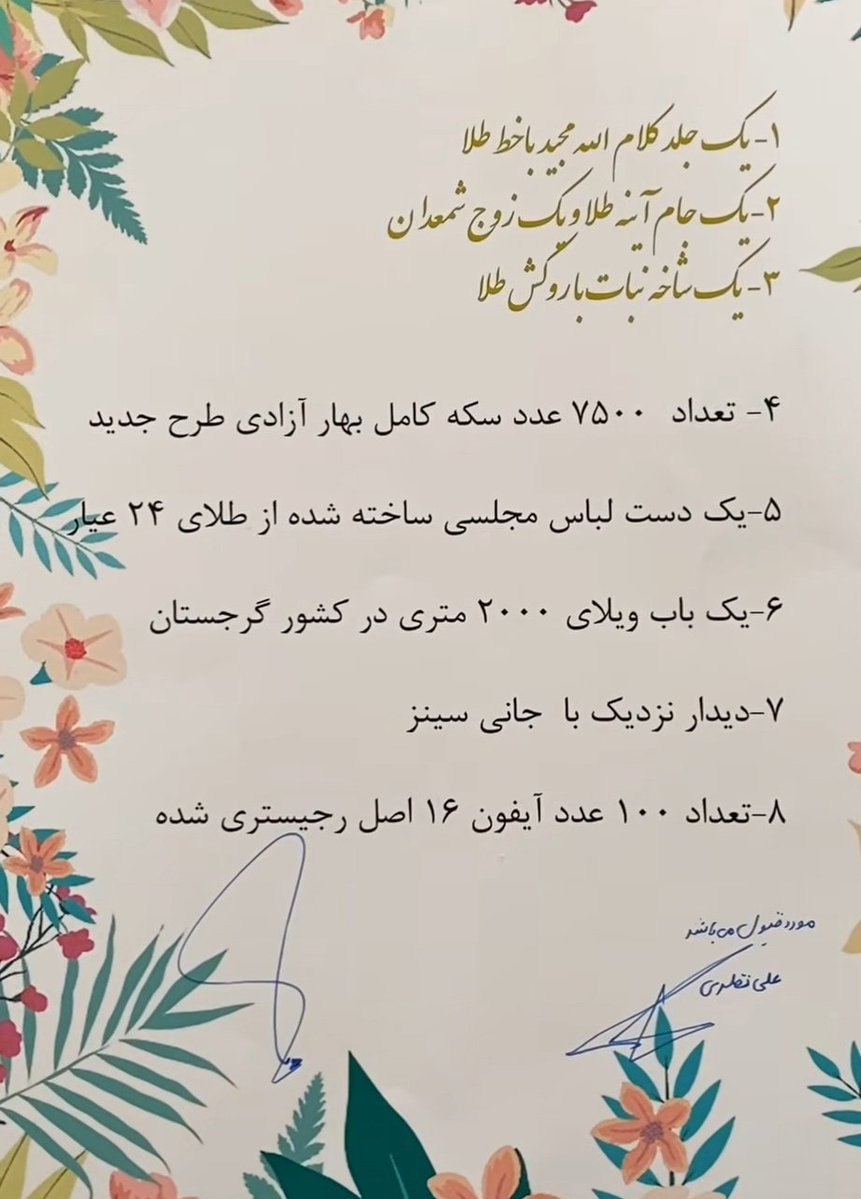 ۱-یک جلد کلام الله مجید با خط طلا
۲-یک جام آینه طلا و یک زوج شمعدان
۳-یک شاخه نبات با روکش طلا
۴- تعداد ۷۵۰۰ عدد سکه کامل بهار آزادی طرح جدید
۵-یک دست لباس مجلسی ساخته شده از طلای ۲۴ عیار
۶-یک باب ویلای ۲۰۰۰ متری در کشور گرجستان
۷-دیدار نزدیک با جانی سینز
۸-تعداد ۱۰۰ عدد آیفون ۱۶ اصل رجیستری شده
مورد قبول می باشد
علی